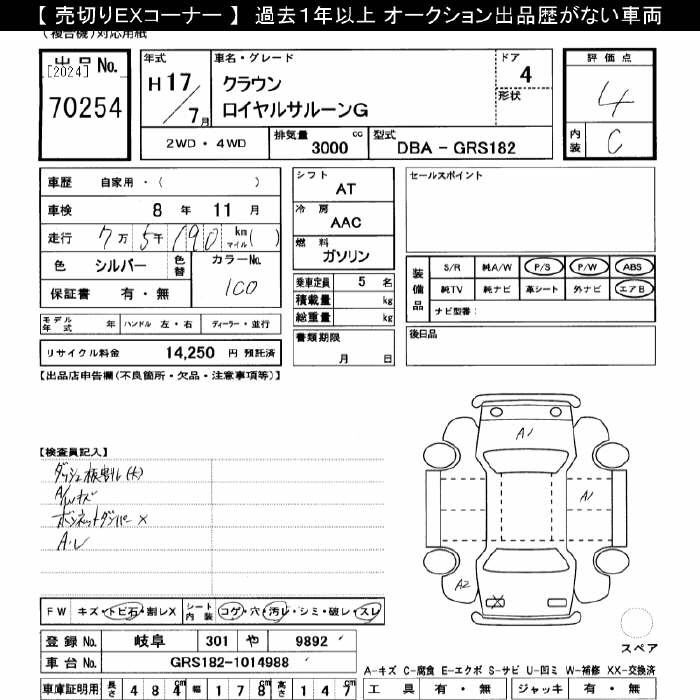 【 売切りEXコーナー 】 過去１年以上 オークション出品歴がない車両
(複合機)対応用紙
出品 No.
[2024]
70254
年式
H17/7月
車名・グレード
クラウン
ロイヤルサルーンG
ドア
4
形状
評価点
4
内装
C
2WD ・ 4WD
排気量 3000 cc
型式 DBA － GRS182
車歴 自家用 ・ ( )
車検 8 年 11 月
走行 7万 5千 190 km マイル ( )
色 シルバー 色替 カラーNo. 1C0
保証書 有 ・ 無
モデル年式 年 ハンドル 左・右 ディーラー・並行
リサイクル料金 14,250 円 預託済
シフト AT
冷房 AAC
燃料 ガソリン
乗車定員 5 名
積載量 kg
総重量 kg
書類期限
月 日
セールスポイント
装備品
S/R 純A/W P/S P/W ABS
純TV 純ナビ 革シート 外ナビ エアB
ナビ型番：
後日品
【出品店申告欄(不良箇所・欠品・注意事項等)】
【検査員記入】
ダッシュ板割レ(大)
A/Wキズ
ボンネットダンパー ×
A・レ
A1
A1
A2
X
スペア
FW キズ・トビ石・割レX シート内装 コゲ・穴・汚レ・シミ・破レ・スレ
登録 No. 岐阜 301 や 9892
車台 No. GRS182-1014988
車庫証明用 長さ 484cm 幅 178cm 高さ 147cm
A-キズ C-腐食 E-エクボ S-サビ U-凹ミ W-補修 XX-交換済
工具 有 ・ 無 ジャッキ 有 ・ 無